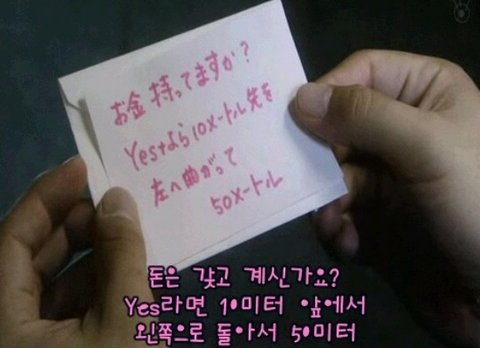 お金持ってますか?
Yesなら10メートル先を
左へ曲がって
50メートル
돈은 갖고 계신가요?
Yes라면 10미터 앞에서
왼쪽으로 돌아서 50미터